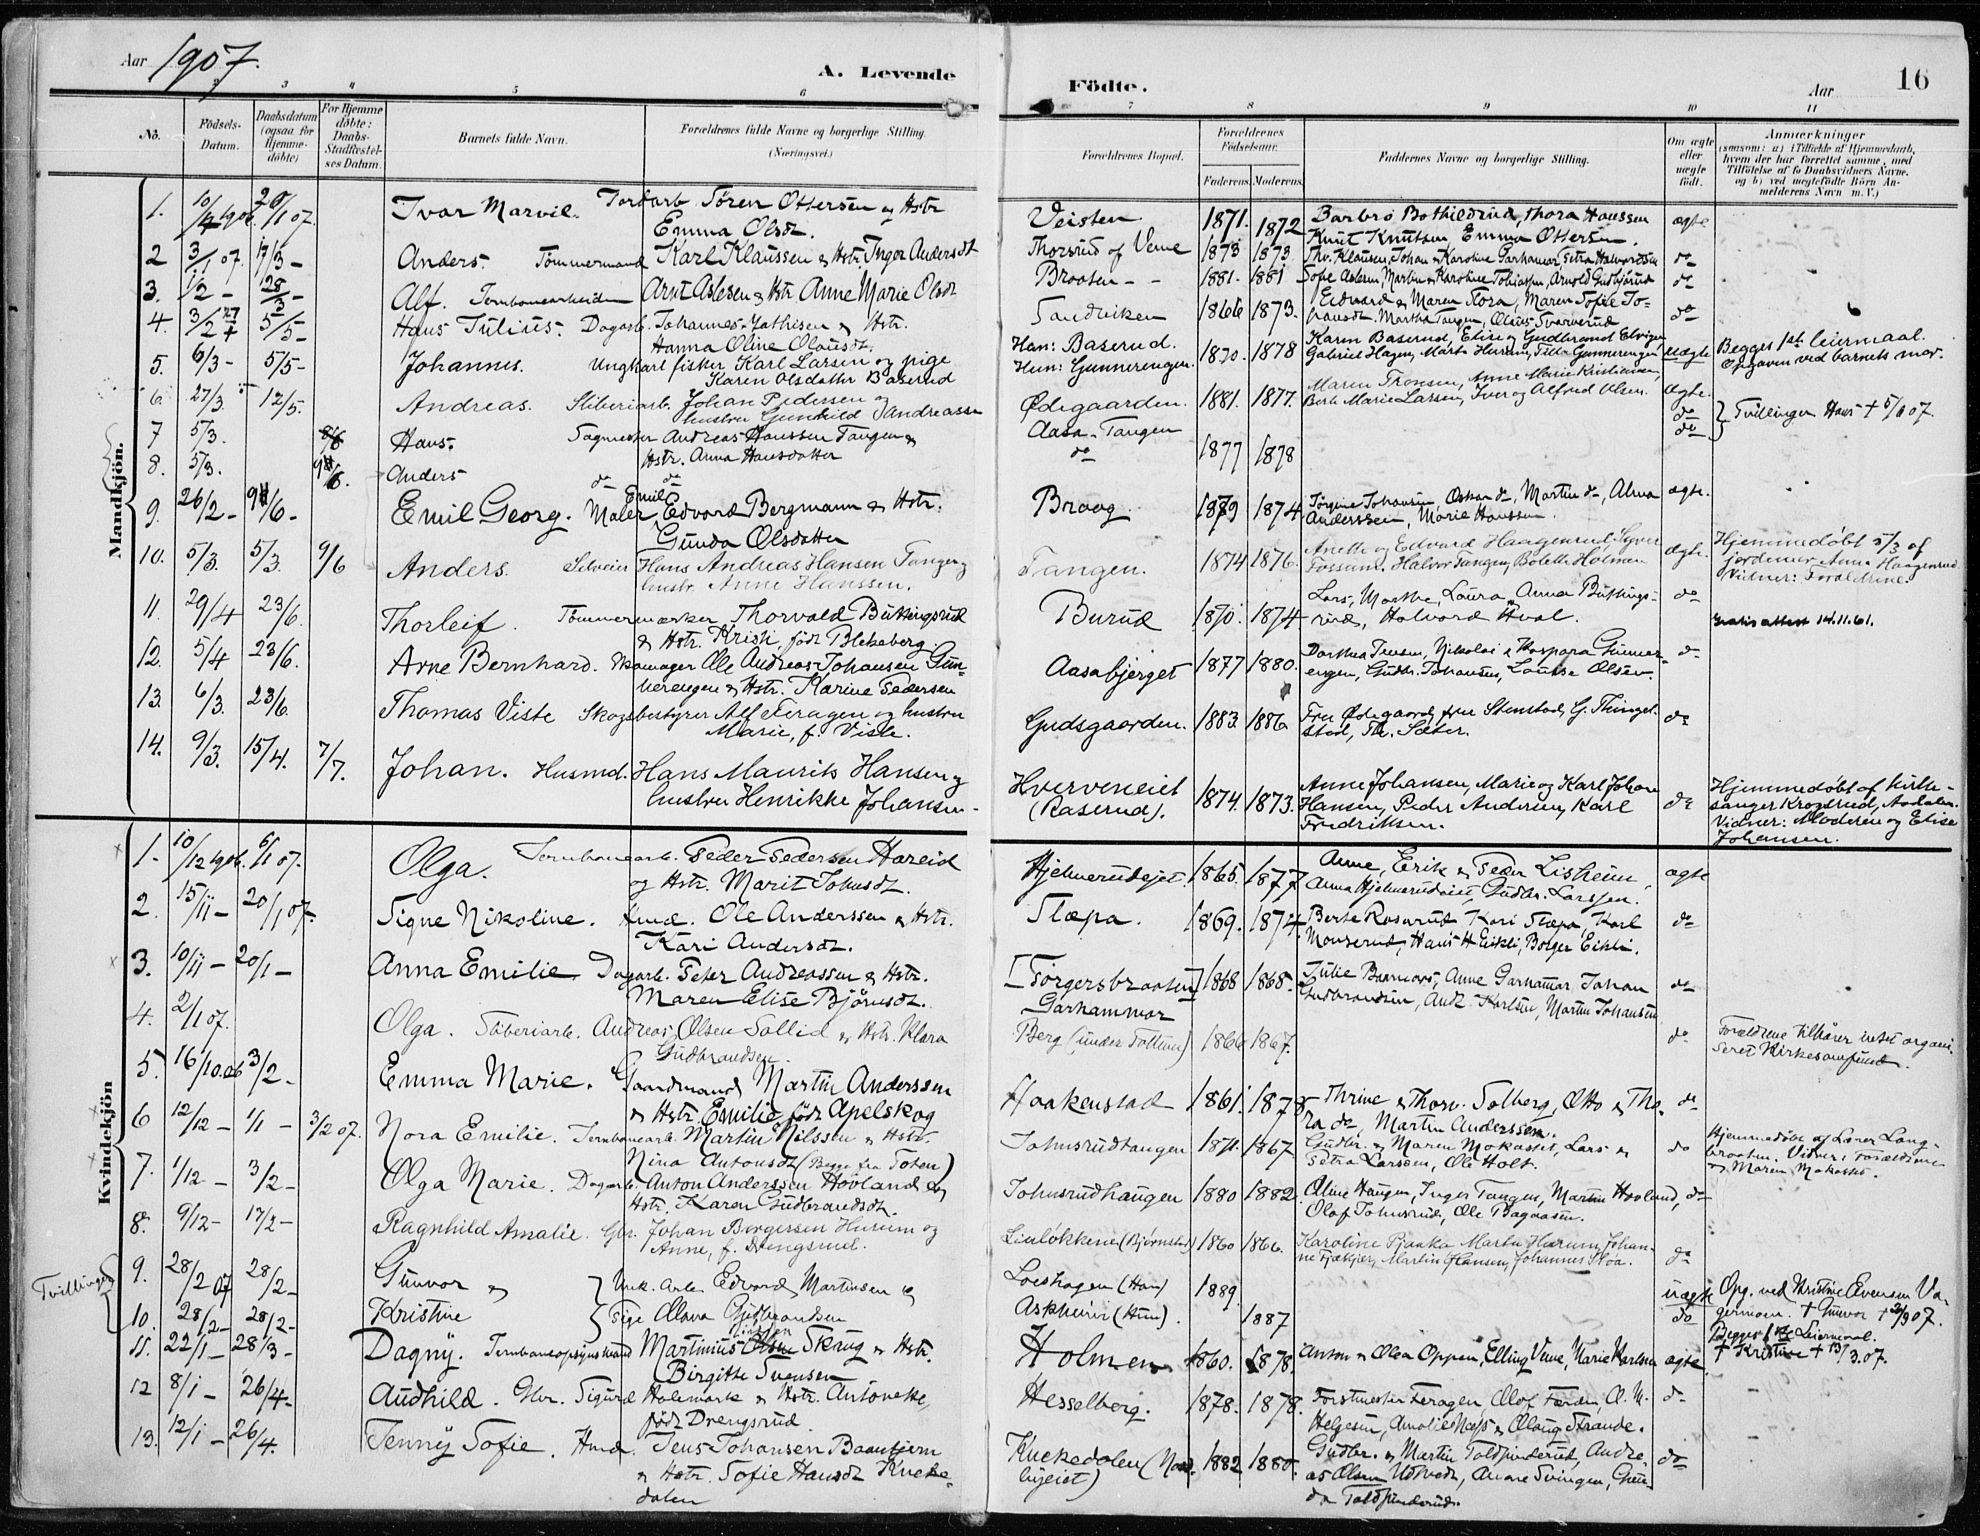 Aar 1907.
A. Levende
Födte.
Aar
16
2 3 4 5 6 7 8 9 10 11
No.
Födsels-Datum.
Daabsdatum (ogsaa for Hjemme-döbte)
For Hjemme döbte: Daabs-Stadfæstel-ses Datum.
Barnets fulde Navn.
Forældrenes fulde Navne og borgerlige Stilling. (Næringsvei.)
Forældrenes Bopæl.
Forældrenes Födselsaar.
Faderens. Moderens.
Faddernes Navne og borgerlige Stilling.
Om ægte eller uægte födt.
Anmærkninger
(saasom: a) i Tilfælde af Hjemmedaab,
hvem der har forrettet samme, med
Tilföielse af to Daabsvidners Navne.
og b) ved uægtefödte Börn An-
melderens Navn m. V.)
Mandkjön.
1. 10/12 1906. 20/1 07. Ivar Marvil. Jordarb. Sören Ottersen og Hstr Veisten 1871. 1872 Barbro Bothildrud, Thora Hanssen ægte
Emma Olsdt. Knut Knutsen, Emma Ottersen.
2 3/1 07. 17/3 - Anders. Tömmermand Karl Klaussen & Hstr. Inger Andersdt Thorsrud af Veme 1873 1873. Thv. Klausen, Johan & Karoline Garhamar, Petra Halvordsen do
3. 1/2 - 28/3 - Alf. Jernbanearbeider Arnt Aslesen & Hstr. Anne Marie Olsdt Braaten - - 1881. 1881 Sofie Aslesen, Martin & Karoline Tobiassen, Arnold Gudbjørud do
4. 3/2 5/5- Hans Julius. Dagarb. Johannes Mathisen & Hstr. Sandviken 1866 1873. Edvard & Maren Flora, Maren Sofie Jo- do
Hanna Oline Olausdt. hansdt. Martha Tangen, Olaus Svarverud
5. 6/3 - 5/5- Johannes. Ungkarl fisker Karl Larsen og pige Han: Baserud. 1870. 1878 Karen Baserud, Elise og Gudbrand Elvigen uægte Begges 1ste leiermaal.
Karen Olsdatter Baserud Hun: Gunnerengen. Gabriel Hagen, Marte Hurum, Gunnerengen Opgaven ved barnets mor.
6. 27/3. 12/5. Andreas. Sliberiarb. Johan Pedersen og Ødegaarden. 1881. 1877. Maren Tronsen, Anne Marie Kristiansen, ægte.
hustru Gunhild Andreassen Berte Marie Larsen, Iver og Alfred Olsen.
7 5/3. 8/6 Hans. Sagmester Andreas Hanssen Tangen & Aasa-Tangen 1877 1878 do } Tvillinger Hans † 5/6 07.
8. 5/3. 9/6. Anders do Hstr. Anna Hansdatter do do
9. 26/2 - 9/6 - Emil Georg. Maler Emil Edvard Bergmann & Hstr. Braag. 1879 1874 Jörgine Johansen, Oskar do, Martin do, Alma ægte.
Gunda Olsdatter Anderssen, Marie Hanssen.
10. 5/3. 5/3. 9/6 Anders. Selveier Hans Andreas Hansen Tangen og Tangen. 1874 1876. Anette og Edvard Haagenrud, Syver ægte. Hjemmedöbt 5/3 af
hustr. Anne Hanssen. Fossum, Halvor Tangen, Bolette Holmen jordemor Anna Haagenrud.
Vidner: Forældrene.
11. 29/4 23/6. Thorleif. Tömmermærker Thorvald Buttingsrud Burud 1870. 1874 Lars, Marthe, Laura, Anna Buttings- do
& Hstr. Kristi, föd Blekaberg. rud, Halvard Hval. Gratis attest 14.11.61.
12. 5/4 23/6. Arne Bernhard. Skomager Ole Andreas Johansen Gun- Aasabjerget 1877 1880. Dorthea Jensen, Nikolai & Kaspara Gunner- do
nerengen & Hstr. Karine Pedersen engen, Gudbr. Johansen, Louise Olsen.
13. 6/3. 23/6. Thomas Viste Skogsbestyrer Alf Feragen og hustru Gudsgaarden. 1883. 1886. Fru Ødegaard, fru Stenstad, G. Thingel- do
Marie, f. Viste. stad, Th. Sæter.
14. 9/3. 15/4. 7/7. Johan. Husmd. Hans Maurits Hansen og Hverveneiet 1874. 1873. Anne Johansen, Marie og Karl Johan do Hjemmedöbt af kirke-
hustru Henrikke Johansen. (Raserud). Hansen, Peder Andersen, Karl sanger Krogsrud, Aadalen.
Fredriksen. Vidner: Moderen og Elise
Johansen.
Kvindekjön
1. 10/12 1906. 6/1 07. Olga. Jernbanearb. Peder Pedersen Hareid Hjelmerudejet. 1865. 1877 Anne, Erik & Peder Lisheim, ægte
og Hstr. Marit Johnsdt. Anna Hjelmerudeiet, Gudbr. Larssen.
2. 15/11 - 20/1 07. Signe Nikoline. Hmd. Ole Anderssen & Hstr. Stæpa. 1869. 1874. Berte Roserud, Kari Stæpa, Karl do
Kari Andersdt. Monserud, Hans H Eikli, Borger Eikli.
3. 10/11 - 20/1 - Anna Emilie. Dagarb. Peter Andreassen & Hstr. [Torgersbraaten] 1868 1868. Julie Bjørnerud, Anne Garhamar, Johan do
Maren Elise Björnsdt. Garhammor Gudbrandsen, Andr. Karlsen, Martin Johansen
4. 2/1 07. Olga. Sliberiarb. Andreas Olsen Sollid & Hstr. Klara Berg (under Follum) 1866 1867. do Forældrene tilhører intet organi-
Gudbrandsen. seret Kirkesamfund.
5. 16/10.06 3/2 - Emma Marie. Gaardmand Martin Anderssen Haakenstad 1861. 1878 Thrine & Thorv. Solberg, Otto & Tho- do
& Hstr. Emilie föd Apelskog ra do, Martin Anderssen.
6 12/12 - 1/1 - 3/2 07. Nora Emilie. Jernbanearb. Martin Nilssen & Hstr. Johnsrudtangen 1871. 1867 Gudbr. & Maren Mokastet, Lars & do Hjemmedöbt af Lærer Lang-
Nina Antonsdt (Begge fra Toten) Petra Larssen, Ole Holt. braaten. Vidner: Forældrene
& Maren Mokastet.
7. 1/12 - 3/2 - Olga Marie. Dagarb. Anton Anderssen Hovland & Johnsrudhaugen 1880 1882. Oline Haugen, Inger Tangen, Martin Hovland, do
Hstr. Karen Gudbrandsdt. Olof Johnsrud, Ole Bagaasen.
8. 9/12 - 17/2 - Ragnhild Amalie. Gbr. Johan Borgersen Hurum og Linløkkene (Bjørnstad) 1860 1866. Karoline Pjaaka, Marte Hurum, Johan- do
Anne, f. Drengsrud. ne Fjækjer, Martin Hansen, Johannes Moa.
Tvillinger
9. 28/2 07 28/2 - Gunvor & } Unk. Arb. Edvard Martinsen og Loeshagen (Han) 1889. uægte Opg. ved Kristine Evensen Va-
10. 28/2 - 28/2 - Kristine } Pige Olava Gudbrandsen Askheim (Hun). 1887 do germoen. † Gunvor † 2/3 07.
Begges 1ste Leiermaal.
† Kristine † 13/3.07.
11. 22/1 - 28/3 - Dagny. Jernbaneopsynsmand Martinius Olsen Skrug & Hstr. Holmen 1860. 1878. Anton & Olea Oppen, Elling Veme, Marie Karlsen ægte
Birgitte Svensen
12 8/1 - 26/4 - Audhild. Gbr. Sigurd Holemark & Hstr. Antonette, Hesselberg. 1878. 1878. Forstmester Feragen, Olof Færden, O. M. do
född Drengsrud Helgesen, Amalie Næss & Olaug Strande.
13. 12/1 - 26/4. Jenny Sofie. Hmd. Jens Johansen Baasbjerm Knekedalen 1882 1880. Gudbr. & Martin Toldfinderud, Andre- do
& Hstr. Sofie Hansdt Kneke- as Olsen Udtvedt, Anne Svingen, Gun-
dalen da Toldfinderud.